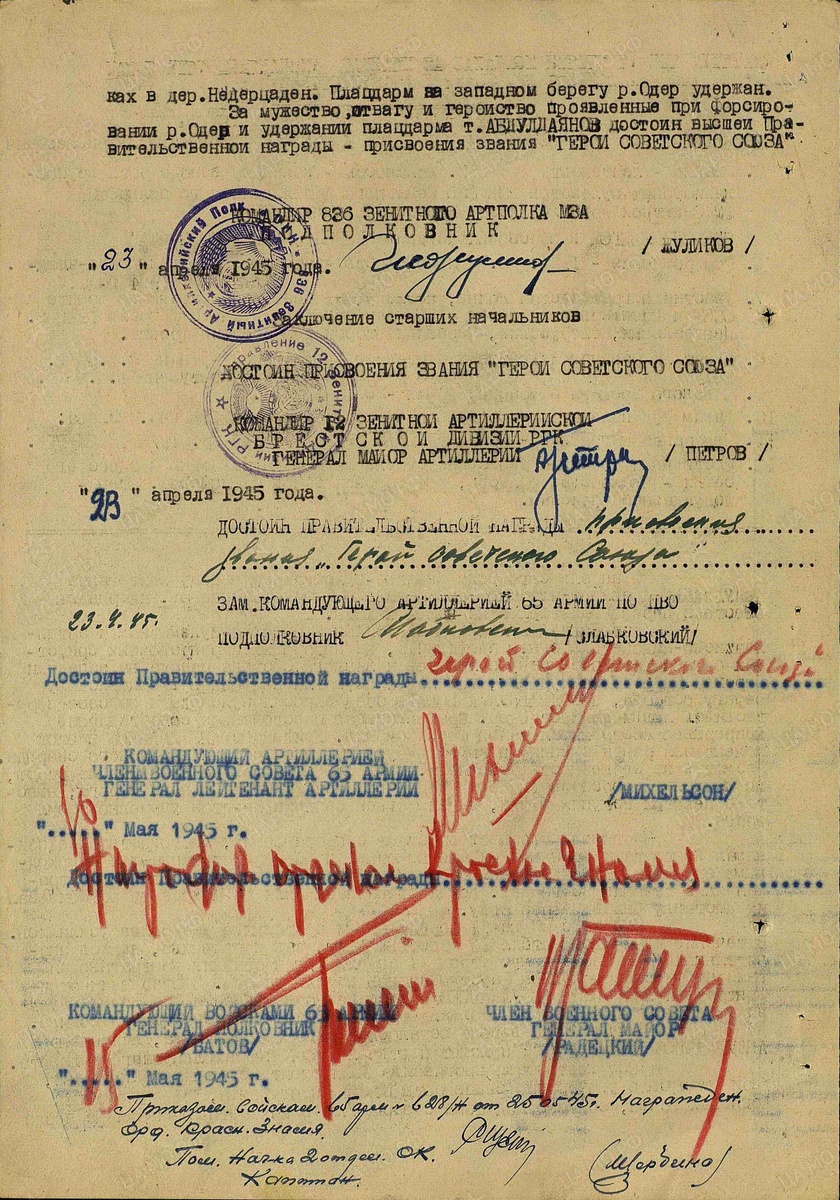 ках в дер.Недерцаден. Плацдарм на западном берегу р.Одер удержан.
За мужество,отвагу и героиство проявленные при форсиро-
вании р.Одер и удержании плацдарма т.АБДУЛЛАЯНОВ достоин высшеи Пра-
вительственной награды - присвоения звания "ГЕРОИ СОВЕТСКОГО СОЮЗА"
КОМАНДИР 836 ЗЕНИТНОГО АРТПОЛКА МЗА
ПОДПОЛКОВНИК
/ ЖУЛИКОВ /
"23" апреля 1945 года.
Заключение старших начальников
ДОСТОИН ПРИСВОЕНИЯ ЗВАНИЯ "ГЕРОИ СОВЕТСКОГО СОЮЗА"
КОМАНДИР 12 ЗЕНИТНОИ АРТИЛЛЕРИИСКОИ
БРЕСТСКОИ ДИВИЗИИ РГК
ГЕНЕРАЛ МАИОР АРТИЛЛЕРИИ / ПЕТРОВ /
"23" апреля 1945 года.
ДОСТОИН ПРАВИТЕЛЬСТВЕННОЙ НАГРАДЫ присвоения
звания „Герой Советского Союза"
ЗАМ.КОМАНДУЮЩЕГО АРТИЛЛЕРИЕЙ 65 АРМИИ ПО ПВО
23.4.45г.
ПОДПОЛКОВНИК /ЗЛАБКОВСКИЙ/
Достоин Правительственной награды Герой Советского Союза
КОМАНДУЮЩИЙ АРТИЛЛЕРИЕЙ
ЧЛЕН ВОЕННОГО СОВЕТА 65 АРМИИ
ГЕНЕРАЛ ЛЕЙТЕНАНТ АРТИЛЛЕРИИ /МИХЕЛЬСОН/
"....." Мая 1945 г.
Достоин Правительственной награды Красное Знамя
КОМАНДУЮЩИЙ ВОЙСКАМИ 65 АРМИИ
ГЕНЕРАЛ ПОЛКОВНИК
/БАТОВ/
ЧЛЕН ВОЕННОГО СОВЕТА
ГЕНЕРАЛ МАЙОР
/РАДЕЦКИЙ/
"15" Мая 1945 г.
Приказом войскам 65 арм N 628/н от 25 05 45г. Награжден
Орд. Красн. Знамя.
Пом. Нач-ка 2 отдел. ОК.
Капитан. (Щербина)